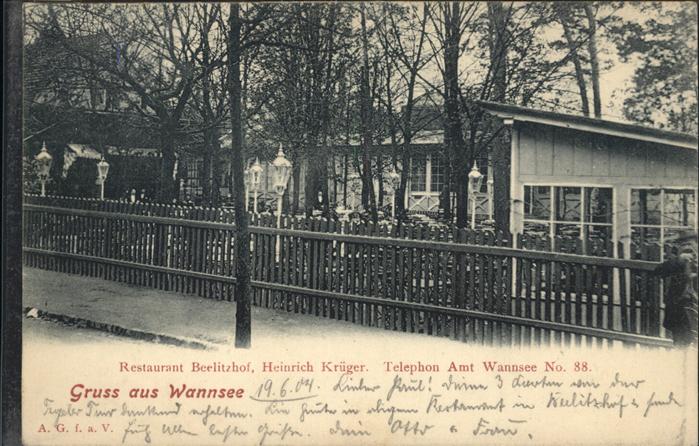 Restaurant Beelitzhof, Heinrich Krüger. Telephon Amt Wannsee No. 88.
Gruss aus Wannsee 19.6.04. Lieber Paul! Deine 3 Karten von der
Tegeler Tour dankend erhalten. Sind heute in obigem Restaurant in Beelitzhof u. sende
A. G. f. a. V. Euch allen besten Grüße. Dein Otto u. Frau.